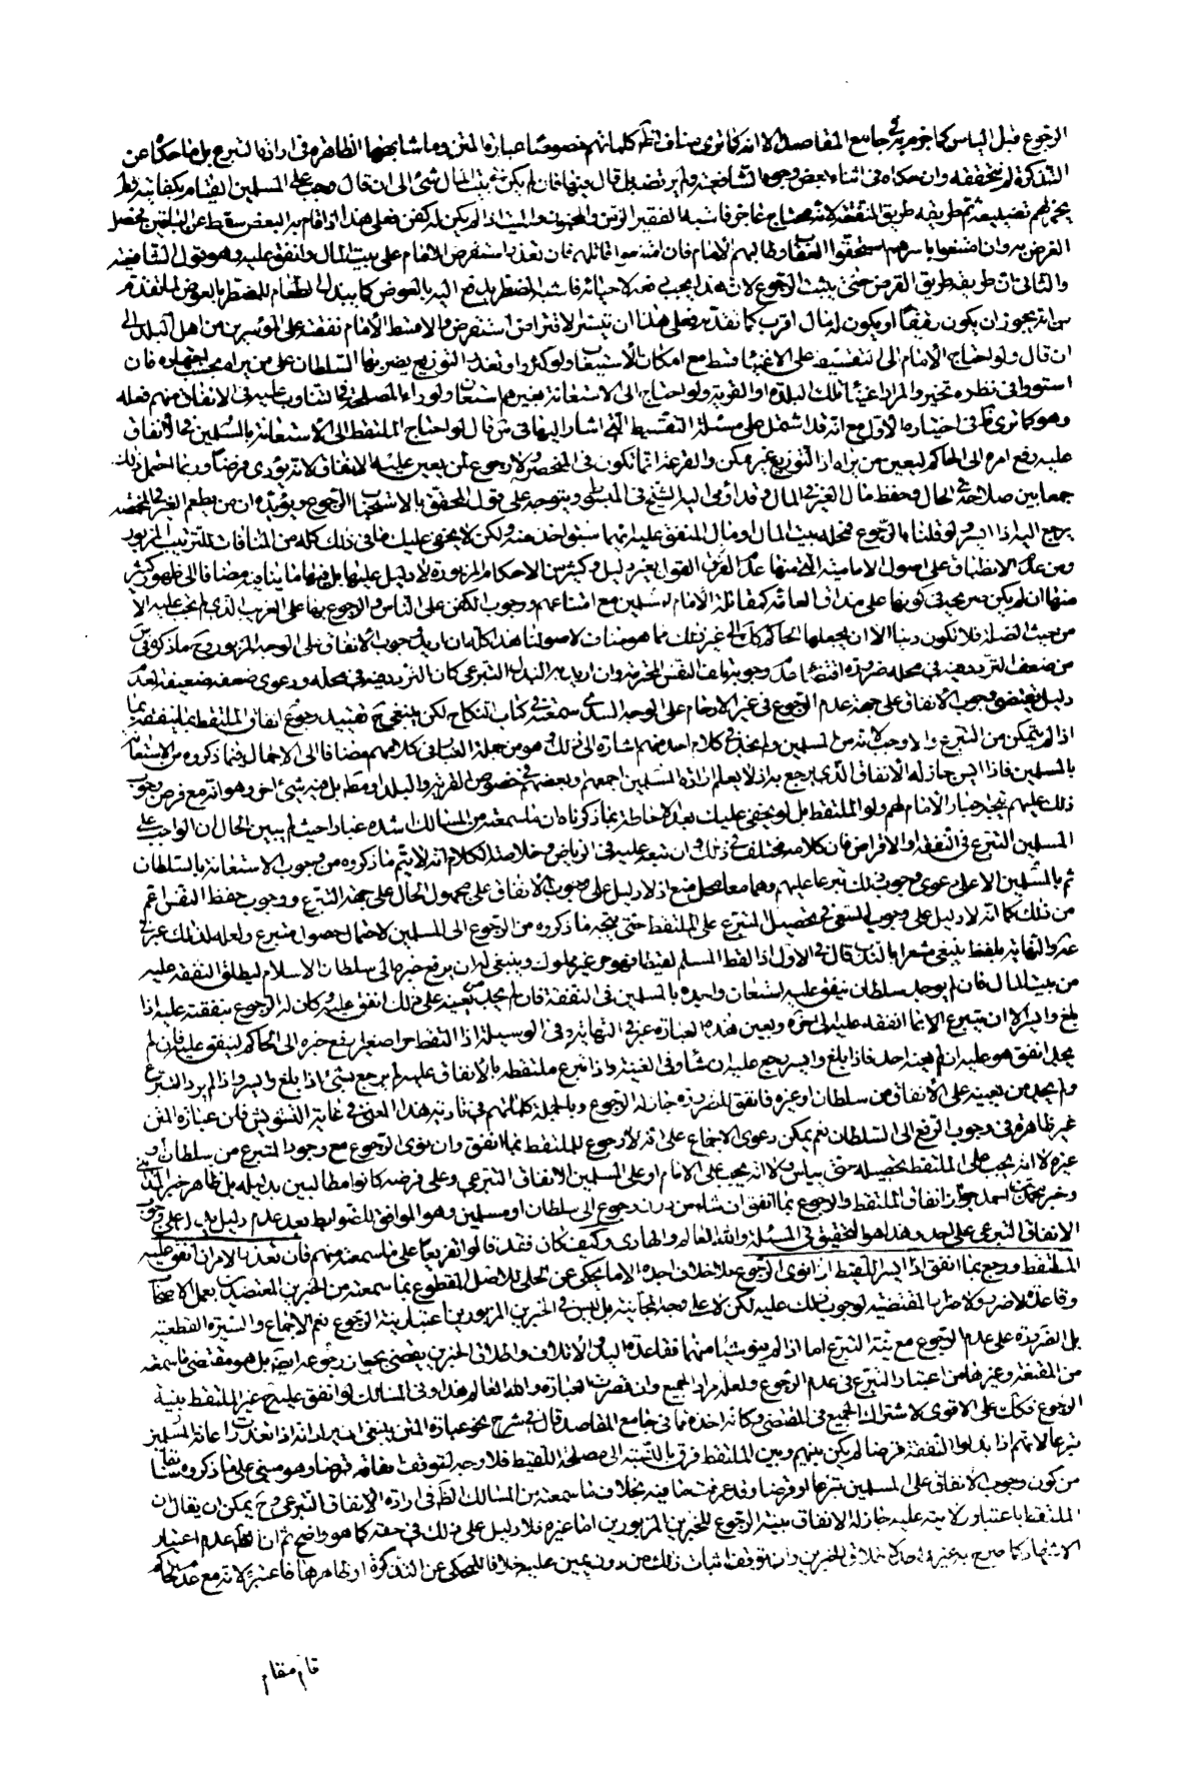 الرجوع قبل اليأس كما جزم به في جامع المقاصد الا انه كما ترى مناف لظ كلماتهم خصوصا عبارة المتن وما شابهها الظاهرة في ارادة التبرع بل ما حكاه عن
التذكرة لم نتحققه وان حكاه في اثناء بعض وجوه الشافعية ولم يرتضه بل قال فيها فان لم يكن في بيت المال شئ الى ان قال وجب على المسلمين القيام بكفايته ولم
يجز لهم تضييعه ثم طريقه طريق النفقة لانه محتاج عاجز فاشبه الفقير الزمن والمجنون والميت اذا لم يكن له كفن فعلى هذا اذا قام به البعض سقط عن الباقين لحصل
الغرض به وان امتنعوا باسرهم استحقوا العقاب وطالبهم الامام فان امتنعوا قاتلهم فان تعذر استقرض الامام على بيت المال وانفق عليه وهو قول الشافعية
والثاني ان طريقه طريق القرض حتى يثبت الرجوع لان هذا يجب دفعه لاحيائه فاشبه المضطر يدفع اليه بالعوض كما يبذل الطعام للمضطر بالعوض لما تقدم
من انه يجوز ان يكون رقيقا او يكون له مال اقرب كما تقدم فعلى هذا ان تيسر الاقتراض استقرض والا قسط الامام نفقته على الموسرين من اهل البلد الى
ان قال ولو احتاج الامام الى التقسيط على الاغنياء قسط مع امكان الاستيعاب ولو كثروا وتعذر التوزيع يضربها السلطان على من يراه بحسب اجتهاده فان
استووا في نظره تخير والمراد اغنياء تلك البلدة او القرية ولو احتاج الى الاستعانة بغيرهم استعان ولو راى المصلحة في التناوب عليه في الانفاق منهم فعله
وهو كما ترى ظ في اختياره الاول مع انه قد اشتمل على مسئلة التقسيط التي اشار اليها في س قال لو احتاج الملتقط الى الاستعانة بالمسلمين في الانفاق
عليه رفع امره الى الحاكم ليعين من يراه اذ التوزيع غير ممكن والقرعة انما تكون في المنحصر ولا رجوع لمن يعين عليه الانفاق لانه يؤدي فرضا وربما احتمل ذلك
جمعا بين صلاحه في الحال وحفظ مال الغير في المال وقد اومى اليه الشيخ في المبسوط ويتوجه على قول المحقق بالاستحباب الرجوع ويؤيده ان من يطعم الغير في المخمصة
يرجع اليه اذا ايسر ولو قلنا بالرجوع فمحله بيت المال او مال المنفق عليه ايهما سبق اخذ منه ولكن لا يخفى عليك ما في ذلك كله من المنافات للترتيب المزبور
ومن عدم الانطباق على اصول الامامية التي منها عدم القول بغير دليل وكثير من الاحكام المزبورة لا دليل عليها بل فيها ما ينافيه مضافا الى ظهور كثير
منها ان لم يكن صريحه في كونها على مذاق العامة كمقاتلة الامام المسلمين مع امتناعهم ووجوب الكفن على الناس والرجوع بها على القريب الذي لم تجب عليه الا
من حيث الصلة فلا تكون دينا الا ان يجعلها الحاكم كك الى غير ذلك مما هو مناف لاصولنا هذا كله ان اريد وجوب الانفاق على الوجه المزبور وح ما ذكره في س
من ضعف التردد فيه في محله ضرورة اقتضاء وجوب حفظ النفس المحترمة وان اريد به البذل التبرعى كان التردد فيه في محله ودعوى ضعفه ضعيفة لعدم
دليل يقتضي وجوب الانفاق على جهة عدم الرجوع في غير الارحام على الوجه الذي سمعته في كتاب النكاح لكن ينبغي ح تقييد رجوع انفاق الملتقط بما ينفقه بما
اذا لم يتمكن من التبرع والا وجب لانه من المسلمين ولم نجد في كلام احد منهم اشارة الى ذلك وهو من جملة الغبار في كلامهم مضافا الى الاجمال فيما ذكروه من الاستعانة
بالمسلمين فاذا ايس جاز له الانفاق الذي يرجع به اذ لا يعلم ارادة المسلمين اجمعهم او بعضهم في خصوص القرية والبلد او مطلقا بل فيه شئ اخر وهو انه مع فرض وجوب
ذلك عليهم يتجه اجبار الامام لهم ولو الملتقط بل لا يخفى عليك بعد الاحاطة بما ذكرناه ان ما سمعته من المسالك اشده غبارا حيث لم يبين الحال ان الواجب على
المسلمين التبرع في النفقة او الاقراض فان كلامه مختلف في ذلك وان تبعه عليه في الرياض وخلاصة الكلام انه لا يتم ما ذكروه من وجوب الاستعانة بالسلطان
ثم بالمسلمين الا على دعوى وجوب ذلك تبرعا عليهم وهما معا محل منع اذ لا دليل على وجوب الانفاق على مجهول الحال على جهة التبرع ووجوب حفظ النفس اعم
من ذلك كما انه لا دليل على وجوب السعي في تحصيل المتبرع على الملتقط حتى يتجه ما ذكروه من الرجوع الى المسلمين لاحتمال حصول متبرع ولعله لذلك عبر في
عد والنهاية بلفظ ينبغي مشعرا بالندب قال في الاول اذا لقط المسلم لقيطا فهو حر غير مملوك وينبغي له ان يرفع خبره الى سلطان الاسلام ليطلق النفقة عليه
من بيت المال فان لم يوجد سلطان ينفق عليه استعان واجده بالمسلمين في النفقة فان لم يجد من يعينه على ذلك انفق عليه وكان له الرجوع بنفقته عليه اذا
بلغ وايسر الا ان يتبرع الا بما انفقه عليه الى اخره وبعين هذه العبارة عبر في النهاية وفي الوسيلة اذا التقط حرا صغيرا رفع خبره الى الحاكم لينفق عليه فان لم
يجد انفق هو عليه ان لم يعنه احد فاذا بلغ وايسر رجع عليه ان شاء وفي الغنية واذا تبرع ملتقطه بالانفاق عليه لم يرجع بشئ اذا بلغ وايسر واذا لم يرد التبرع
ولم يجد من يعينه على الانفاق من سلطان او غيره فانفق للضرورة جاز له الرجوع وبالجملة كلماتهم في تادية هذا المعنى في غاية التشويش فان عبارة المتن
غير ظاهرة في وجوب الرفع الى السلطان نعم يمكن دعوى الاجماع على انه لا رجوع للملتقط بما انفق وان نوى الرجوع مع وجود المتبرع من سلطان او
غيره لا انه يجب على الملتقط تحصيله حتى ييأس ولا انه يجب على الامام او على المسلمين الانفاق التبرعي وعلى فرضه كانوا مطالبين بدليله بل ظاهر خبر المدائني
وخبر محمد بن احمد جواز انفاق الملتقط والرجوع بما انفق ان شاء من دون رجوع الى سلطان او مسلمين وهو الموافق للضوابط بعد عدم دليل يدل على وجوب
الانفاق التبرعي على احد وهذا هو التحقيق في المسئلة والله العالم والهادي وكيف كان فقد قالوا تفريعا على ما سمعته منهم فان تعذر الامران انفق عليه
الملتقط ورجع بما انفق اذا ايسر اللقيط اذا نوى الرجوع بلا خلاف اجده الا ما يحكى عن الحلي للاصل المقطوع بما سمعته من الخبرين المعتضدين بعمل الاصحاب
وقاعدة لا ضرر ولا ضرار المقتضية لوجوب ذلك عليه لكن لا على وجه المجانية بل ليس في الخبرين المزبورين اعتبار نية الرجوع نعم الاجماع والسيرة القطعية
بل الضرورة على عدم الرجوع مع نية التبرع اما اذا لم ينو شيئا منهما فقاعدة اليد والاتلاف واطلاق الخبرين يقضي بجواز رجوعه ايضا بل هو مقتضى ما سمعته
من المقنعة وغيرها من اعتبار التبرع في عدم الرجوع ولعله مراد الجميع وان قصرت العبارة والله العالم هذا وفي المسالك لو انفق عليه ح غير الملتقط بنية
الرجوع فكك على الاقوى لاشتراك الجميع في المقتضى وكانه اخذه مما في جامع المقاصد قال في شرح نحو عبارة المتن ينبغي ان يراد انه اذا تعذرت اعانة المسلمين
تبرعا لانهم اذا بذلوا النفقة قرضا لم يكن بينهم وبين الملتقط فرق بالنسبة الى مصلحة اللقيط فلا وجه لتوقف انفاقه قرضا وهو مبني على ما ذكروه سابقا
من كون وجوب الانفاق على المسلمين تبرعا او قرضا وقد عرفت ما فيه بخلاف ما سمعته من المسالك الظ في ارادة الانفاق التبرعي وح يمكن ان يقال ان
الملتقط باعتبار ولايته عليه جاز له الانفاق بنية الرجوع للخبرين المزبورين اما غيره فلا دليل على ذلك في حقه كما هو واضح ثم ان الظ عدم اعتبار
الاشهاد كما صرح به غير واحد لاطلاق الخبرين وان توقف اثبات ذلك من دون يمين عليه خلافا للمحكى عن التذكرة او ظاهرها فاعتبره لانه مع عدم الحاكم
قائم مقام